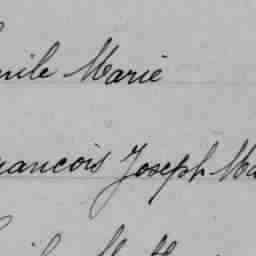 mile Marie
rancois Joseph Ma